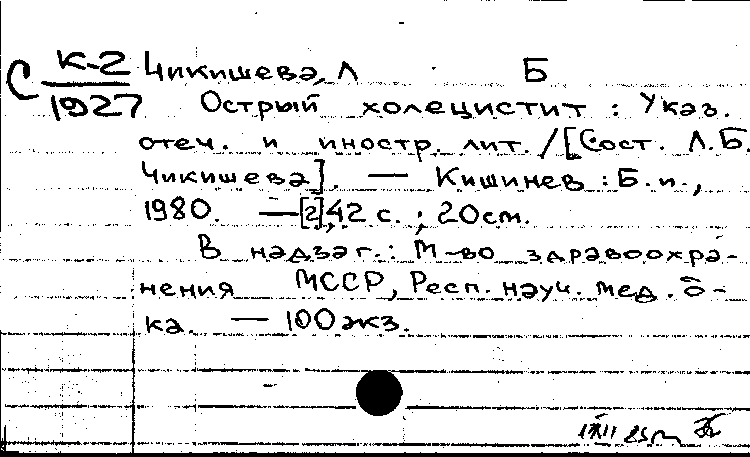 С К-2 Чикишева, Л Б
1927 Острый холецистит : Указ.
отеч. и иностр. лит. / [Сост. Л.Б.
Чикишева]. — Кишинев : Б.и.,
1980. — [2], 42 с. ; 20 см.
В надзаг.: М-во здравоохра-
нения МССР, Респ. науч. мед. б-
ка. — 100 экз.